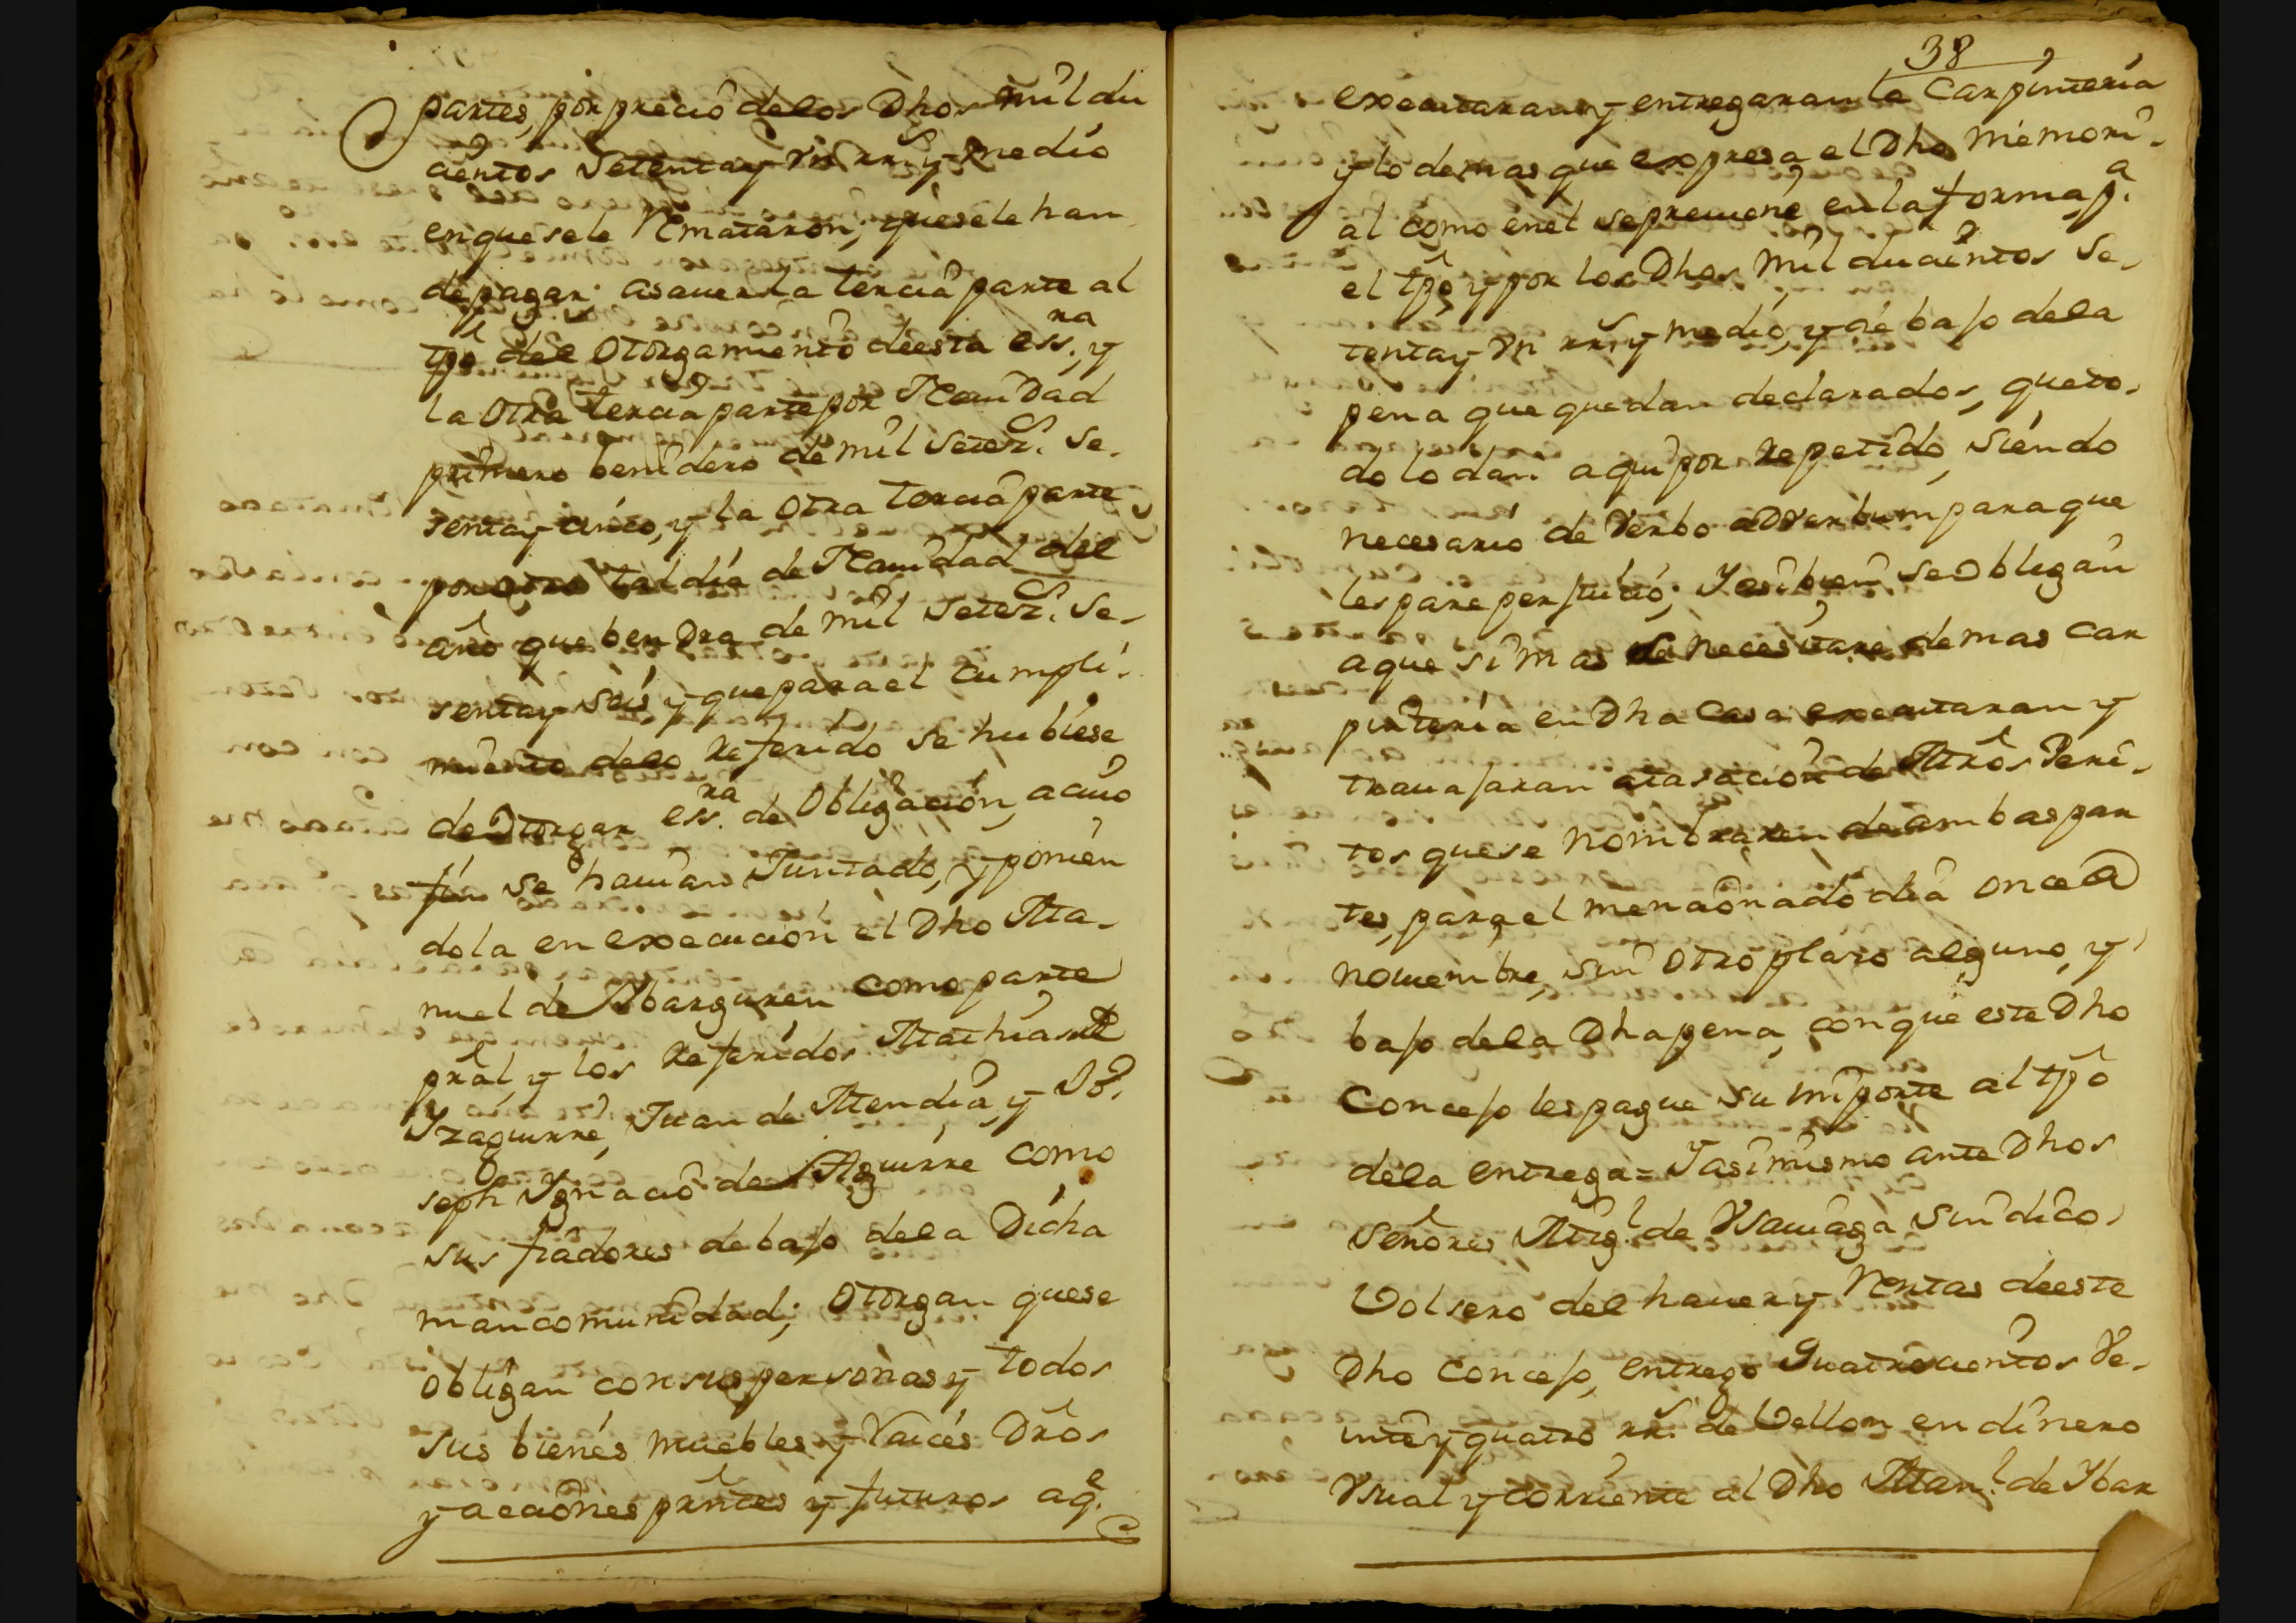 partes, por precio delos Dhos mil du
cientos Setenta y Vn rrs. y medio
en que sele Remataron; que sele han
de pagar. asauer la tercia parte al
tpõ del Otorgamiento deesta essra. y
la Otra tercia parte por Nauidad
primero benidero de mil Setezs. Se-
senta y cinco, y la Otra tercia parte
por otro tal dia de Nauidad del
año que bendra de mil Setezs. Se-
senta y Seis, y que para el Cumpli-
miento delo referido se hubiese
de Otorgar essra. de Obligacion, acuio
fin se hauian Juntado, y ponien
dola en execucion el Dho Ma-
nuel de Ybarguren Como parte
pral, y los referidos Mathias de
Yzaguirre, Juan de Mendia, y Jo-
seph Ygnacio de Aguirre como
sus fiadores debajo dela Dicha
mancomunidad; Otorgan quese
obligan consus personas y todos
sus bienes muebles y Raices Dros
y acciones prntes y futuros aqe.
38
executaran y entregaran la Carpinteria
y lo demas que expresa el Dho Memori-
al como enel sepreuiene en la forma pa.
el tpõ y por los Dhos Mil ducientos Se-
tenta y Vn rrs. y medio, y de bajo dela
pena que quedan declarados, que to-
do lo dan aqui por repetido, Siendo
necesario de Verbo adverbum para que
les pare perjuicio; Y asi bien se Obligan
aque si mas se necesitare de mas Car
pinteria en Dha Casa executaran y
trauajaran atasacion de Mros Peri-
tos quese nombraren de ambas par
tes, para el mencionado dia once de
nouiembre, sin otro plazo alguno, y
bajo dela Dha pena, con que este Dho
Concejo les pague su importe al tpõ
dela entrega = Y asimismo ante Dhos
Señores Migl. de Vsauiaga Sindico
Volsero del hauer y Rentas deeste
Dho Concejo, entrego Quatrocientos Ve-
inte y quatro rrs. de Vellon en dinero
Vsual y corriente al Dho Manl. de Ybar